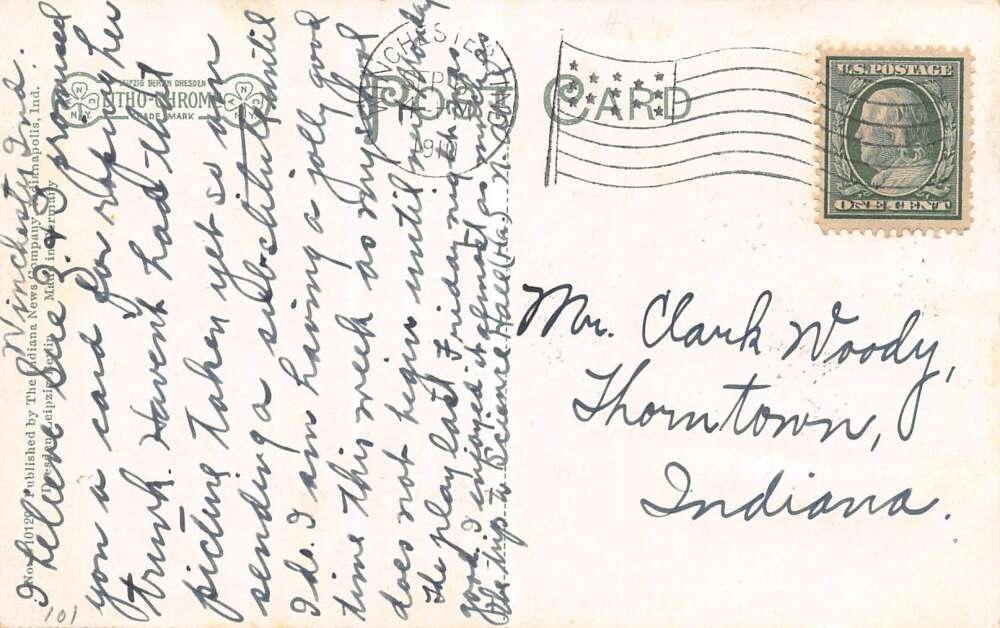 Winchester, Ind.
I believe I promised
you a card for rapidly her
trunk. Havent had that
picture taken yet so am
sending a substitute until
I do. I am having a jolly good
time this week as my school
does not begin until next Monday
The play last Friday night was
good. I enjoyed it almost as much as
the trip to Science Hall (Ha).
No. A 10129 Published by The Indiana News Company, Indianapolis, Ind.
Dresden Leipzig Berlin Made in Germany
LEIPZIG BERLIN DRESDEN
LITHO-CHROME
TRADE MARK
A N C
N.Y.
A N C
N.Y.
101
POST CARD
WINCHESTER
SEP
IND.
U.S. POSTAGE
ONE CENT
Mr. Clark Woody,
Thorntown,
Indiana.